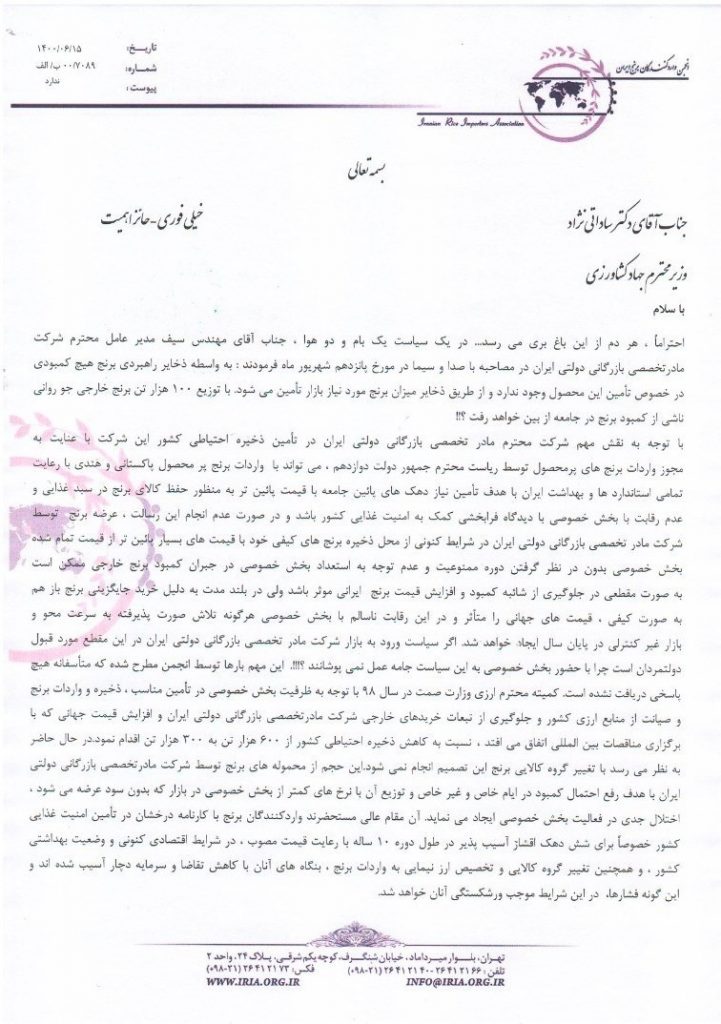 انجمن واردکنندگان برنج ایران
Iranian Rice Importers Association
تاریخ: ۱۴۰۰/۰۶/۱۵
شماره: ۰۰/۷۰۸۹ ب/ الف
پیوست: ندارد
بسمه تعالی
جناب آقای دکتر ساداتی نژاد
خیلی فوری-حائز اهمیت
وزیر محترم جهاد کشاورزی
با سلام
احتراماً ، هر دم از این باغ بری می رسد... در یک سیاست یک بام و دو هوا ، جناب آقای مهندس سیف مدیر عامل محترم شرکت
مادرتخصصی بازرگانی دولتی ایران در مصاحبه با صدا و سیما در مورخ پانزدهم شهریور ماه فرمودند : به واسطه ذخایر راهبردی برنج هیچ کمبودی
در خصوص تأمین این محصول وجود ندارد و از طریق ذخایر میزان برنج مورد نیاز بازار تأمین می شود. با توزیع ۱۰۰ هزار تن برنج خارجی جو روانی
ناشی از کمبود برنج در جامعه از بین خواهد رفت ؟!!
با توجه به نقش مهم شرکت محترم مادر تخصصی بازرگانی دولتی ایران در تأمین ذخیره احتیاطی کشور این شرکت با عنایت به
مجوز واردات برنج های پرمحصول توسط ریاست محترم جمهور دولت دوازدهم ، می تواند با واردات برنج پر محصول پاکستانی و هندی با رعایت
تمامی استاندارد ها و بهداشت ایران با هدف تأمین نیاز دهک های پائین جامعه با قیمت پائین تر به منظور حفظ کالای برنج در سبد غذایی و
عدم رقابت با بخش خصوصی با دیدگاه فرابخشی کمک به امنیت غذایی کشور باشد و در صورت عدم انجام این رسالت ، عرضه برنج توسط
شرکت مادر تخصصی بازرگانی دولتی ایران در شرایط کنونی از محل ذخیره برنج های کیفی خود با قیمت های بسیار پائین تر از قیمت تمام شده
بخش خصوصی بدون در نظر گرفتن دوره ممنوعیت و عدم توجه به استعداد بخش خصوصی در جبران کمبود برنج خارجی ممکن است
به صورت مقطعی در جلوگیری از شائبه کمبود و افزایش قیمت برنج ایرانی موثر باشد ولی در بلند مدت به دلیل خرید جایگزینی برنج باز هم
به صورت کیفی ، قیمت های جهانی را متأثر و در این رقابت ناسالم با بخش خصوصی هرگونه تلاش صورت پذیرفته به سرعت محو و
بازار غیر کنترلی در پایان سال ایجاد خواهد شد. اگر سیاست ورود به بازار شرکت مادر تخصصی بازرگانی دولتی ایران در این مقطع مورد قبول
دولتمردان است چرا با حضور بخش خصوصی به این سیاست جامه عمل نمی پوشانند ؟!!!. این مهم بارها توسط انجمن مطرح شده که متأسفانه هیچ
پاسخی دریافت نشده است. کمیته محترم ارزی وزارت صمت در سال ۹۸ با توجه به ظرفیت بخش خصوصی در تأمین مناسب ، ذخیره و واردات برنج
و صیانت از منابع ارزی کشور و جلوگیری از تبعات خریدهای خارجی شرکت مادرتخصصی بازرگانی دولتی ایران و افزایش قیمت جهانی که با
برگزاری مناقصات بین المللی اتفاق می افتد ، نسبت به کاهش ذخیره احتیاطی کشور از ۶۰۰ هزار تن به ۳۰۰ هزار تن اقدام نمود.در حال حاضر
به نظر می رسد با تغییر گروه کالایی برنج این تصمیم انجام نمی شود.این حجم از محموله های برنج توسط شرکت مادرتخصصی بازرگانی دولتی
ایران با هدف رفع احتمال کمبود در ایام خاص و غیر خاص و توزیع آن با نرخ های کمتر از بخش خصوصی در بازار که بدون سود عرضه می شود ،
اختلال جدی در فعالیت بخش خصوصی ایجاد می نماید. آن مقام عالی مستحضرند واردکنندگان برنج با کارنامه درخشان در تأمین امنیت غذایی
کشور خصوصاً برای شش دهک اقشار آسیب پذیر در طول دوره ۱۰ ساله با رعایت قیمت مصوب ، در شرایط اقتصادی کنونی و وضعیت بهداشتی
کشور ، و همچنین تغییر گروه کالایی و تخصیص ارز نیمایی به واردات برنج ، بنگاه های آنان با کاهش تقاضا و سرمایه دچار آسیب شده اند و
این گونه فشارها، در این شرایط موجب ورشکستگی آنان خواهد شد.
تهران، بلوار میرداماد، خیابان شنگرف، کوچه یکم شرقی، پلاک ۲۴، واحد ۲
تلفن : ۲۶۴۱۲۱۶۶ - ۲۶۴۱۲۱۴۰ (۰۹۸-۲۱) فکس: ۲۶۴۱۲۱۷۳ (۰۹۸-۲۱)
WWW.IRIA.ORG.IR INFO@IRIA.ORG.IR